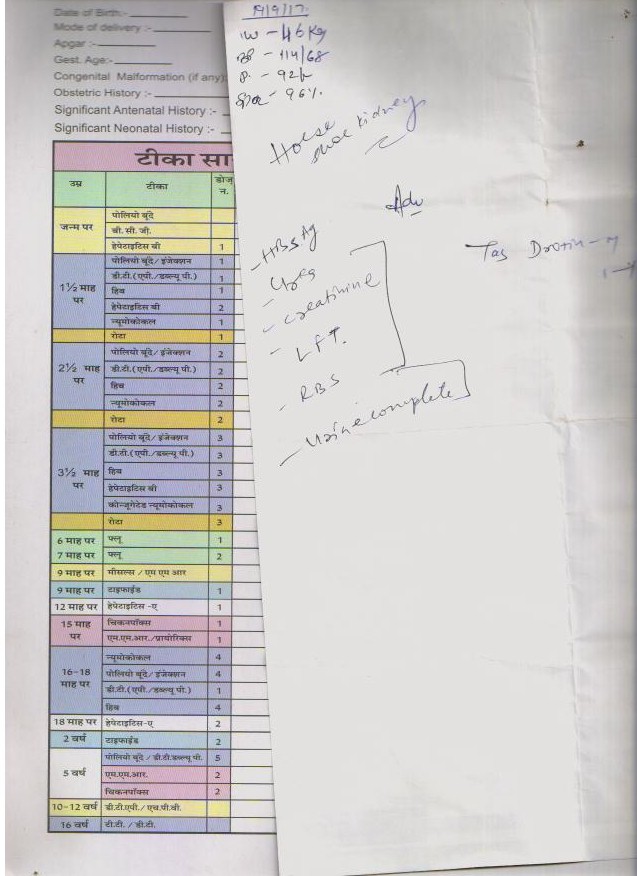 Date of Birth:-
Mode of delivery :-
Apgar :-
Gest. Age:-
Congenital Malformation (if any):
Obstetric History :-
Significant Antenatal History :-
Significant Neonatal History :-
टीका सा
उम्र टीका डोज न.
जन्म पर
पोलियो बूंदे
बी. सी. जी.
हेपेटाइटिस बी 1
1½ माह पर
पोलियो बूंदे/ इंजेक्शन 1
डी.टी.(एपी./डब्ल्यू पी.) 1
हिब 1
हेपेटाइटिस बी 2
न्यूमोकोकल 1
रोटा 1
2½ माह पर
पोलियो बूंदे/ इंजेक्शन 2
डी.टी.(एपी./डब्ल्यू पी.) 2
हिब 2
न्यूमोकोकल 2
रोटा 2
3½ माह पर
पोलियो बूंदे/ इंजेक्शन 3
डी.टी.(एपी./डब्ल्यू पी.) 3
हिब 3
हेपेटाइटिस बी 3
कोन्जूगेटेड न्यूमोकोकल 3
रोटा 3
6 माह पर फ्लू 1
7 माह पर फ्लू 2
9 माह पर मीसल्स / एम एम आर
9 माह पर टाइफाईड 1
12 माह पर हेपेटाइटिस -ए 1
15 माह पर
चिकनपॉक्स 1
एम.एम.आर./प्रायोरिक्स 1
16-18 माह पर
न्यूमोकोकल 4
पोलियो बूंदे/ इंजेक्शन 4
डी.टी.(एपी./डब्ल्यू पी.) 1
हिब 4
18 माह पर हेपेटाइटिस-ए 2
2 वर्ष टाइफाईड 2
5 वर्ष
पोलियो बूंदे / डी.टी.डब्ल्यू पी. 5
एम.एम.आर. 2
चिकनपॉक्स 2
10-12 वर्ष डी.टी.एपी./ एच.पी.वी.
16 वर्ष टी.टी. / डी.टी.
19/9/17
W - 46 Kg
BP - 114/68
P. - 92/
SpO2 - 96%.
Horse shoe kidney
Adv
- HBsAg
- Urea
- creatinine
- LFT.
- RBS
- Urine complete
Tas Drotin - M